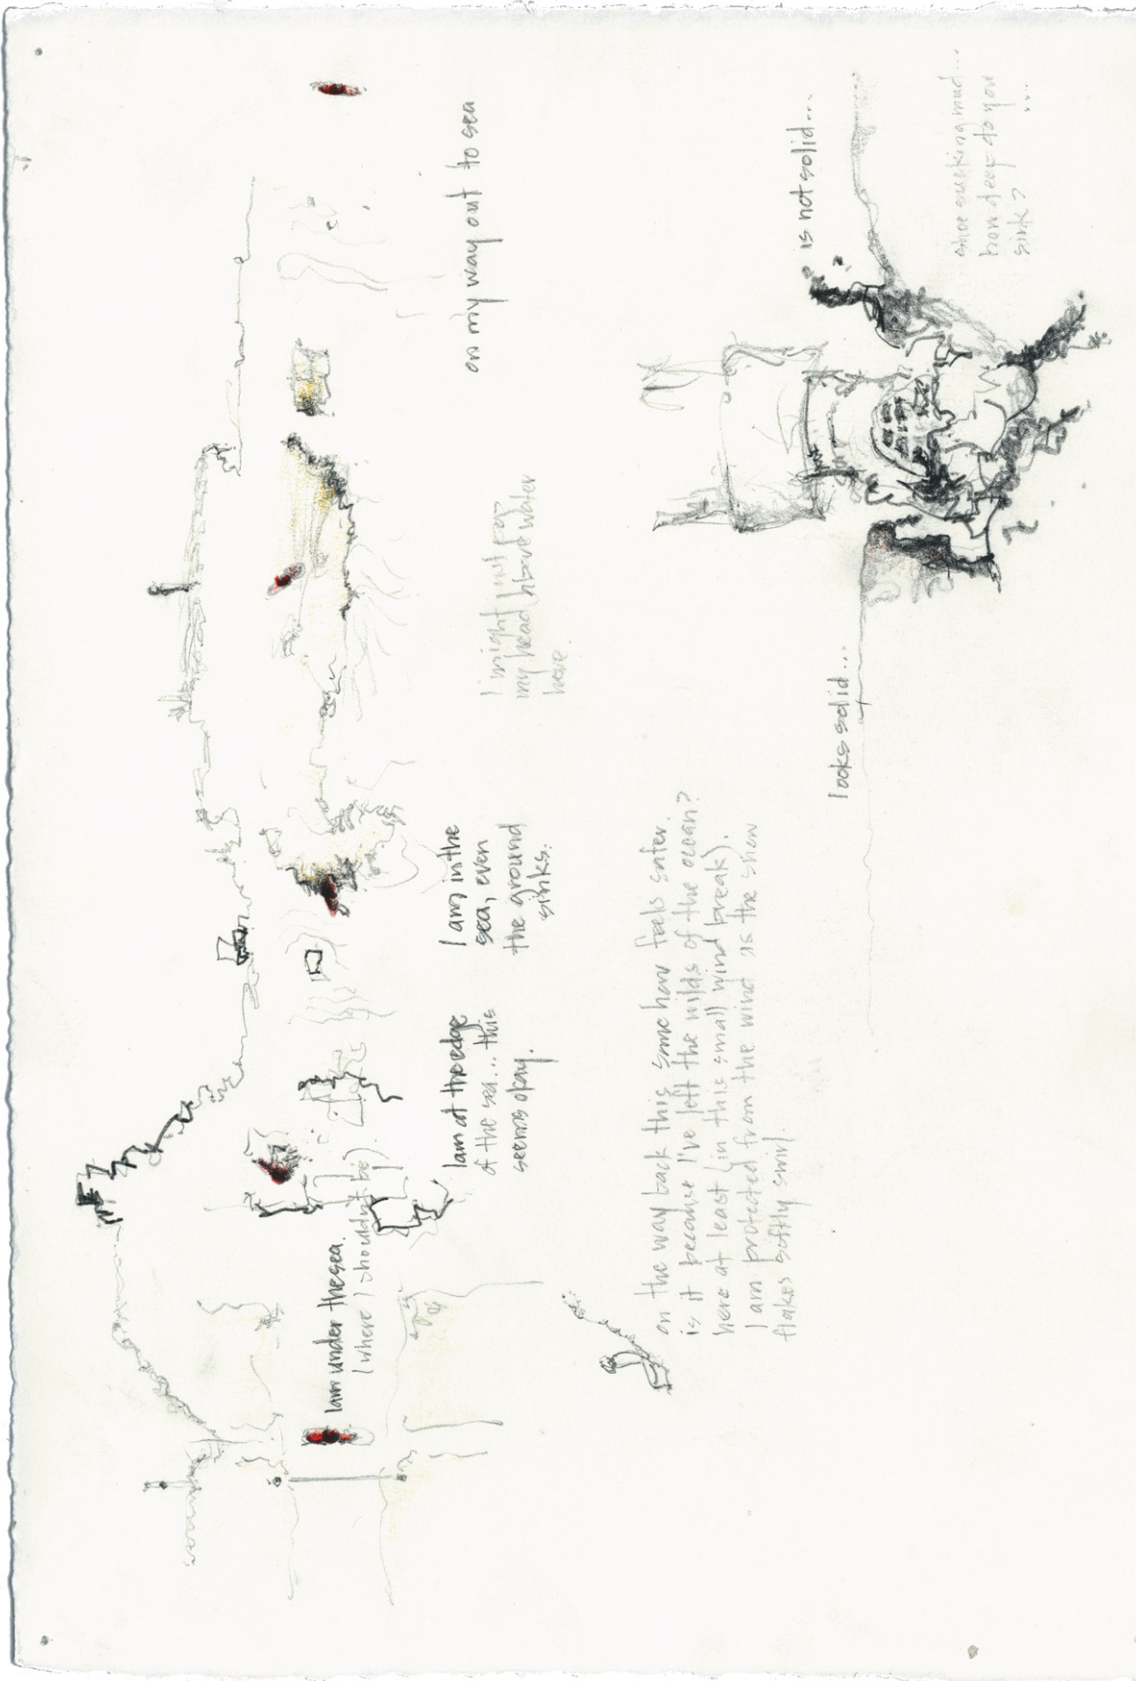 I am under the sea.
(where I shouldn't be).
I am at the edge
of the sea... this
seems okay.
I am in the
sea, even
the ground
sinks.
I might just
my head water
here.
on my way out to sea
on the way back this somehow feels safer.
is it because I've left the wilds of the ocean?
here at least (in this small wind break).
I am protected from the wind as the snow
flakes softly swirl.
looks solid...
is not solid...
shoe sucking mud...
how deep do you
sink? ...